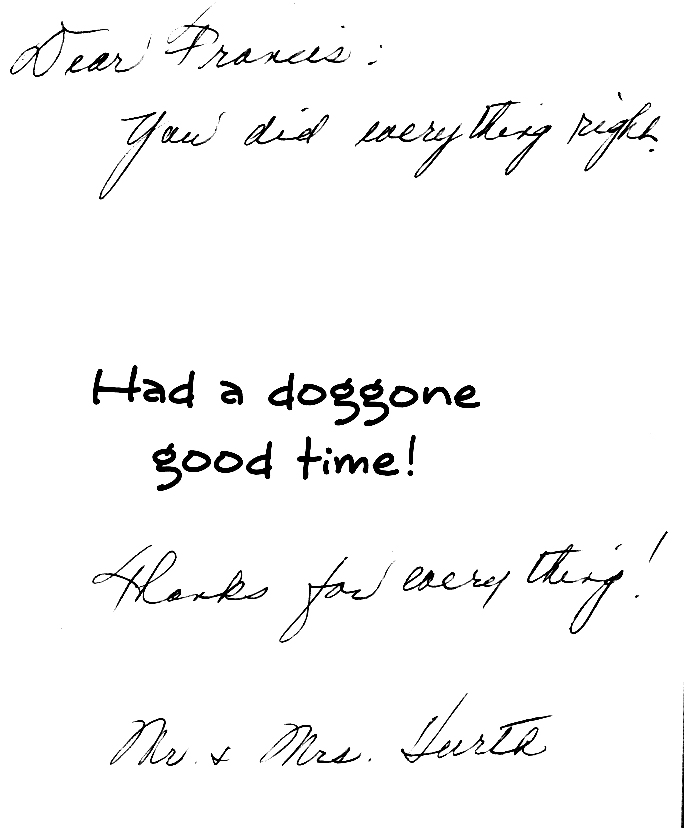 Dear Francis:
You did everything right.
Had a doggone
good time!
Thanks for everything!
Mr. & Mrs. Hurta